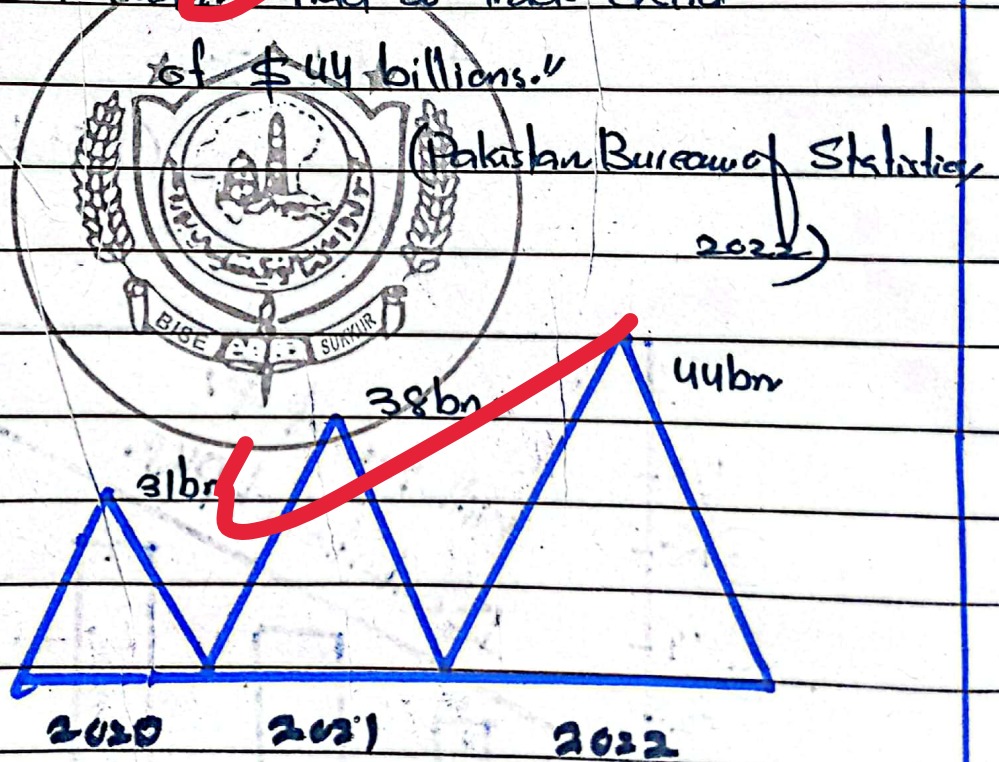 of $44 billions."
(Pakistan Bureau of Statistics
2022)
BISE SUKKUR
44bn
38bn
31bn
2020 2021 2022